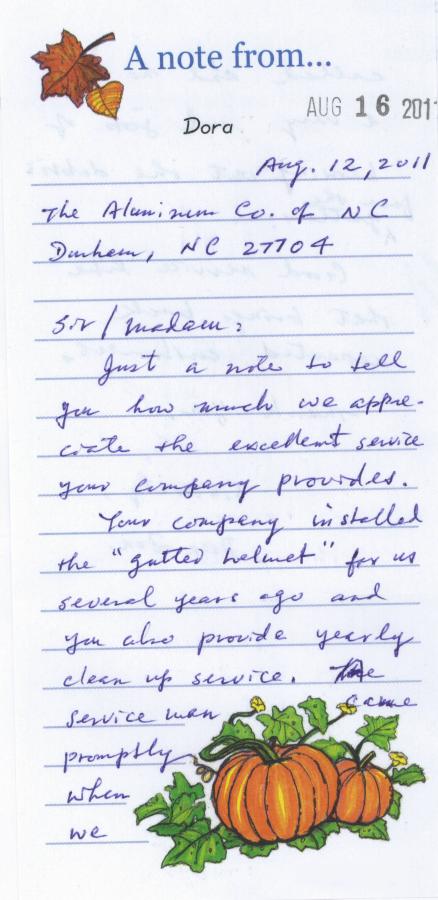 A note from...
AUG 16 2011
Dora
Aug. 12, 2011
The Aluminum Co. of NC
Durham, NC 27704
Sir/Madam:
Just a note to tell
you how much we appre-
ciate the excellent service
your company provides.
Your company installed
the "gutted helmet" for us
several years ago and
you also provide yearly
clean up service. The
service man came
promptly
when
we